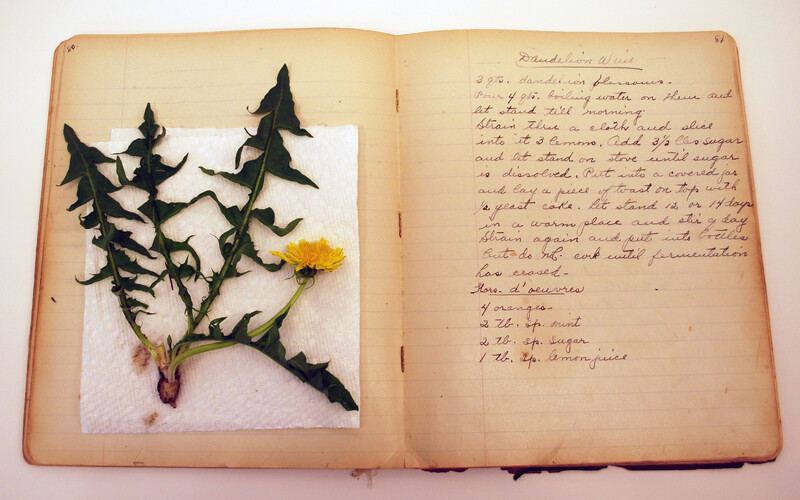 80
81
Dandelion Wine
3 qts. dandelion blossoms -
Pour 4 qts. boiling water on them and
let stand till morning.
Strain thru a cloth and slice
into it 3 lemons. Add 3½ lbs sugar
and let stand on stove until sugar
is dissolved. Put into a covered jar
and lay a piece of toast on top with
½ yeast cake. let stand 12 or 14 days
in a warm place and stir q day
Strain again and put into bottles
but do not cork until fermentation
has ceased -
Hors. d'oeuvres
4 oranges -
2 tb. sp. mint
2 tb. sp. sugar
1 tb. sp. lemon juice